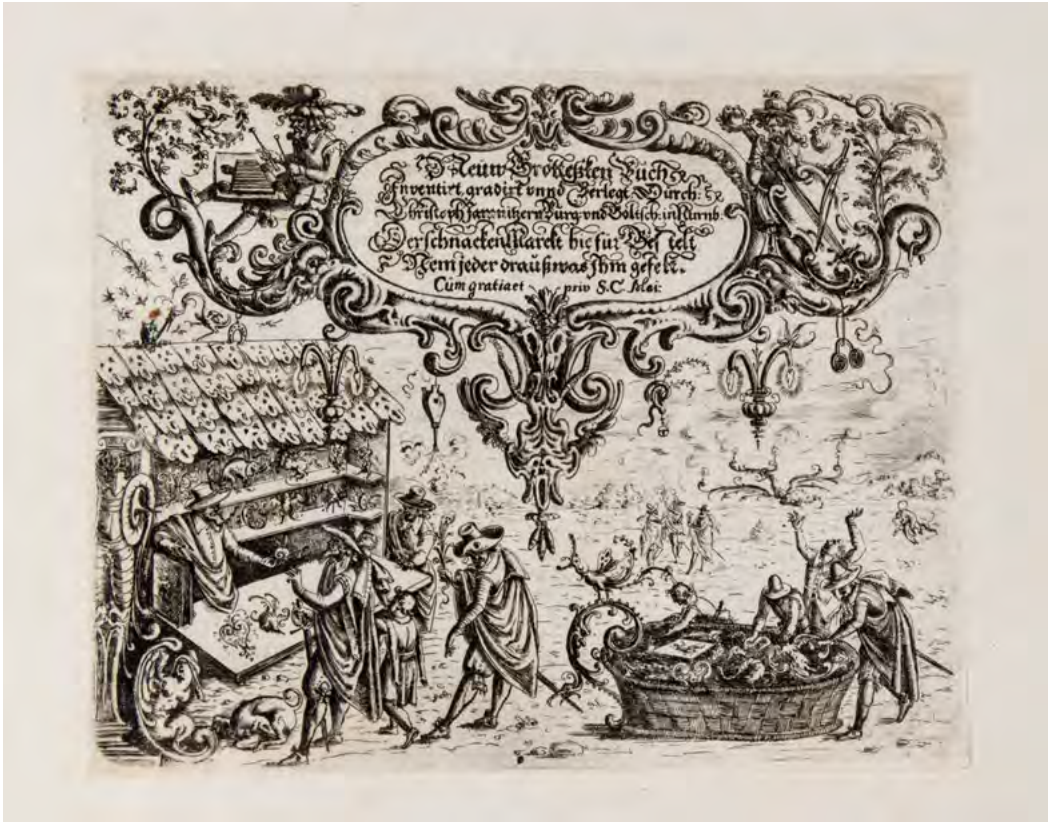 Neuw Grotteßken Buch
Inventirt gradirt vnnd Verlegt Durch:
Christoph Jamnitzern Burg. vnd Goltsch: in Nurnb.
Der schnacken Marckt hie für Bestelt
Nem jeder drauß was Ihm gefelt.
Cum gratia et priv S.C. Mai: